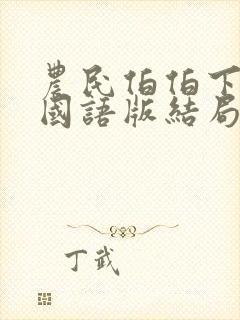 農民伯伯下
國語版結局
丁武